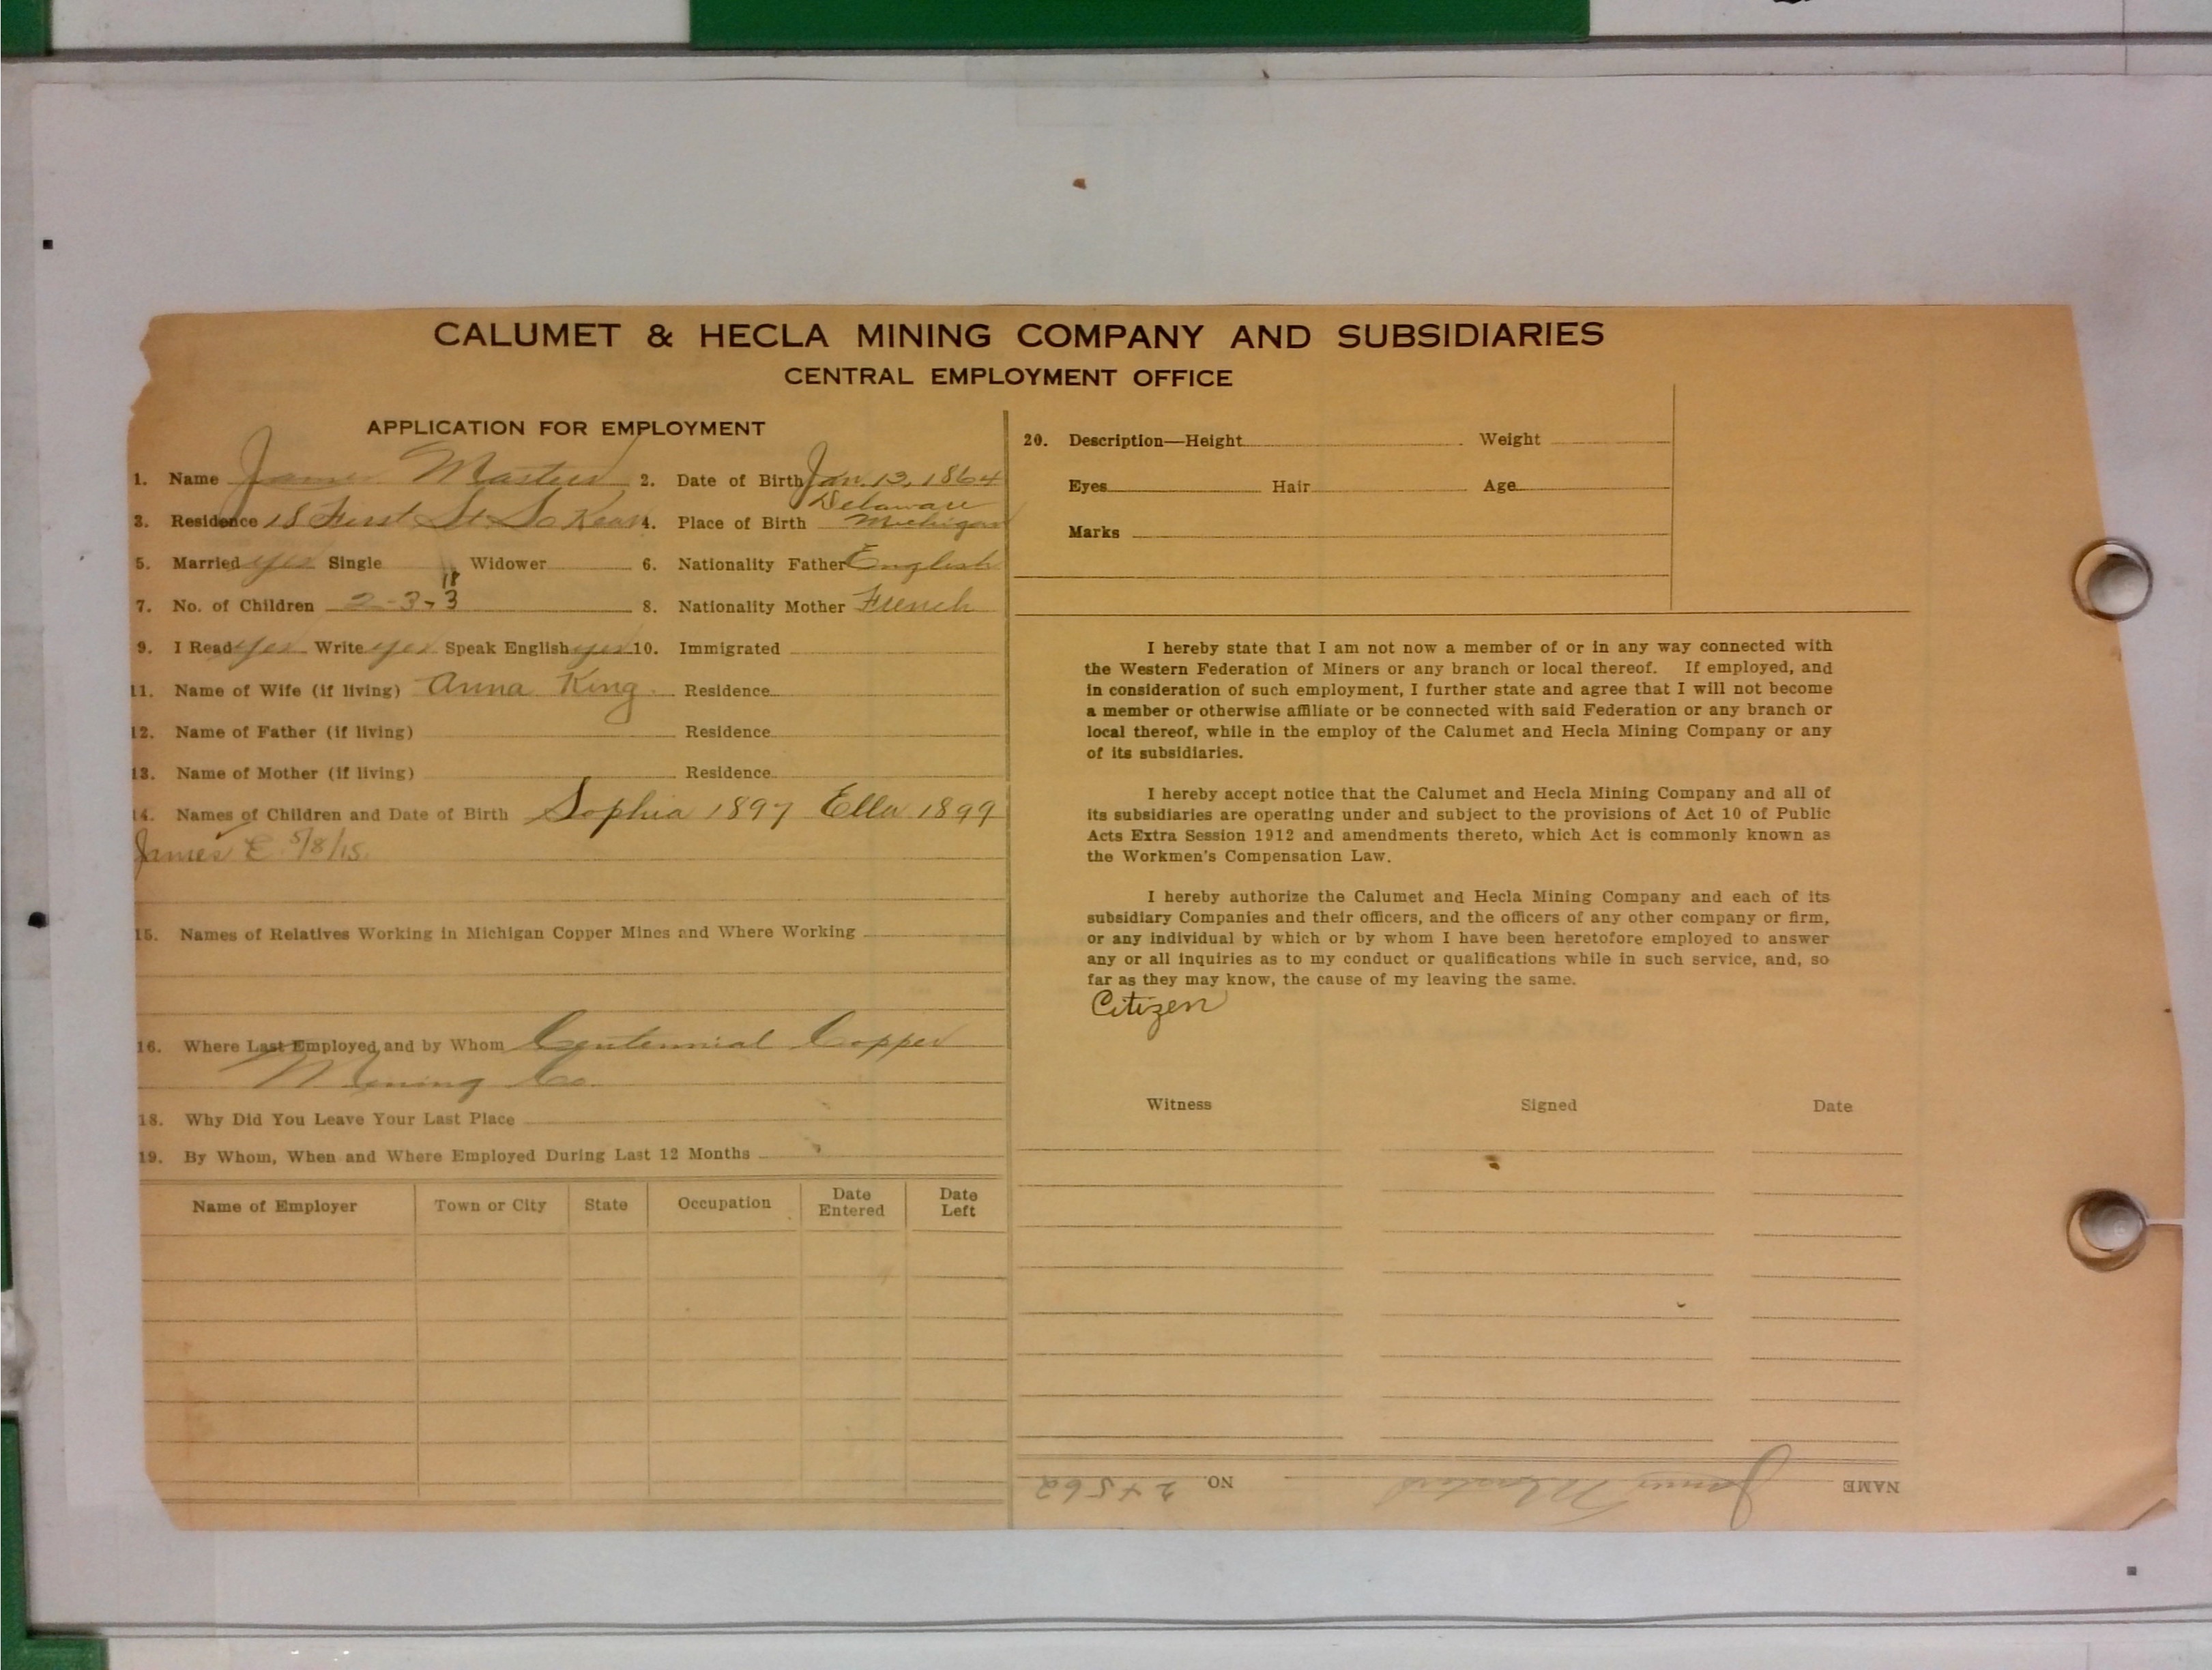 CALUMET & HECLA MINING COMPANY AND SUBSIDIARIES
CENTRAL EMPLOYMENT OFFICE
APPLICATION FOR EMPLOYMENT
1. Name James Masters 2. Date of Birth Jan. 13, 1864
3. Residence 18 First St So Kear. 4. Place of Birth Delaware Michigan
5. Married yes Single Widower 6. Nationality Father English
7. No. of Children 2-3-3 18 8. Nationality Mother French
9. I Read yes Write yes Speak English yes 10. Immigrated
11. Name of Wife (if living) Anna King Residence
12. Name of Father (if living) Residence
13. Name of Mother (if living) Residence
14. Names of Children and Date of Birth Sophia 1897 Ella 1899
James E. 5/8/15.
15. Names of Relatives Working in Michigan Copper Mines and Where Working
16. Where Last Employed and by Whom Centennial Copper
Mining Co.
18. Why Did You Leave Your Last Place
19. By Whom, When and Where Employed During Last 12 Months
Name of Employer Town or City State Occupation Date Entered Date Left
20. Description—Height Weight
Eyes Hair Age
Marks
I hereby state that I am not now a member of or in any way connected with
the Western Federation of Miners or any branch or local thereof. If employed, and
in consideration of such employment, I further state and agree that I will not become
a member or otherwise affiliate or be connected with said Federation or any branch or
local thereof, while in the employ of the Calumet and Hecla Mining Company or any
of its subsidiaries.
I hereby accept notice that the Calumet and Hecla Mining Company and all of
its subsidiaries are operating under and subject to the provisions of Act 10 of Public
Acts Extra Session 1912 and amendments thereto, which Act is commonly known as
the Workmen's Compensation Law.
I hereby authorize the Calumet and Hecla Mining Company and each of its
subsidiary Companies and their officers, and the officers of any other company or firm,
or any individual by which or by whom I have been heretofore employed to answer
any or all inquiries as to my conduct or qualifications while in such service, and, so
far as they may know, the cause of my leaving the same.
Citizen
Witness Signed Date
NAME James Masters NO. 24562